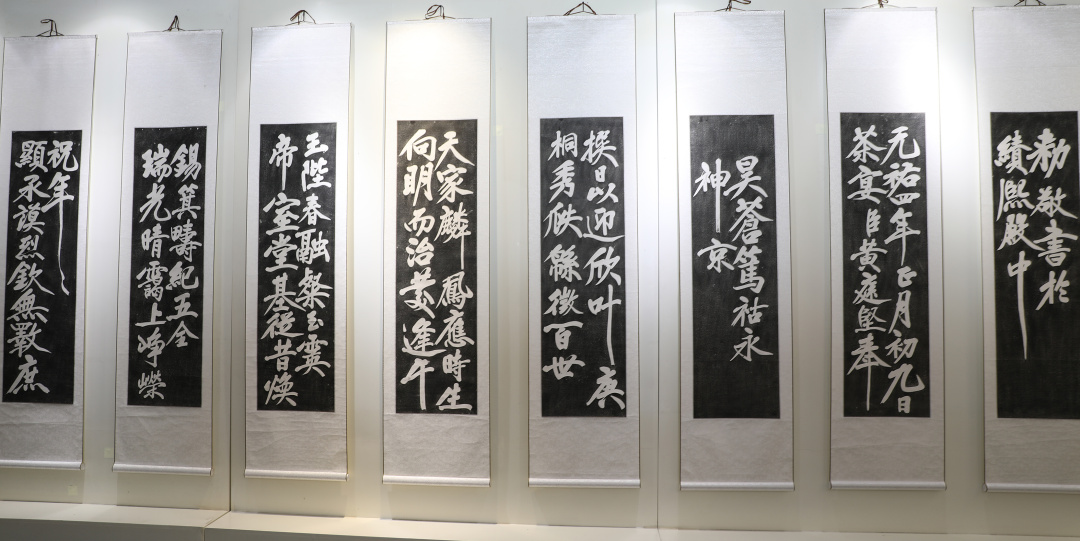 祝年
顯承謨烈欽無斁庶
錫箕疇紀五全
瑞光晴靄上崢嶸
玉陛春融粲玉霙
帝室堂基從昔煥
天家麟鳳應時生
向明而治茲逢午
揆日以迎欣叶庚
桐秀緜徵百世
昊蒼篤祜永
神京
元祐四年正月初九日
茶宴臣黃庭堅奉
勑敬書於
績熙殿中